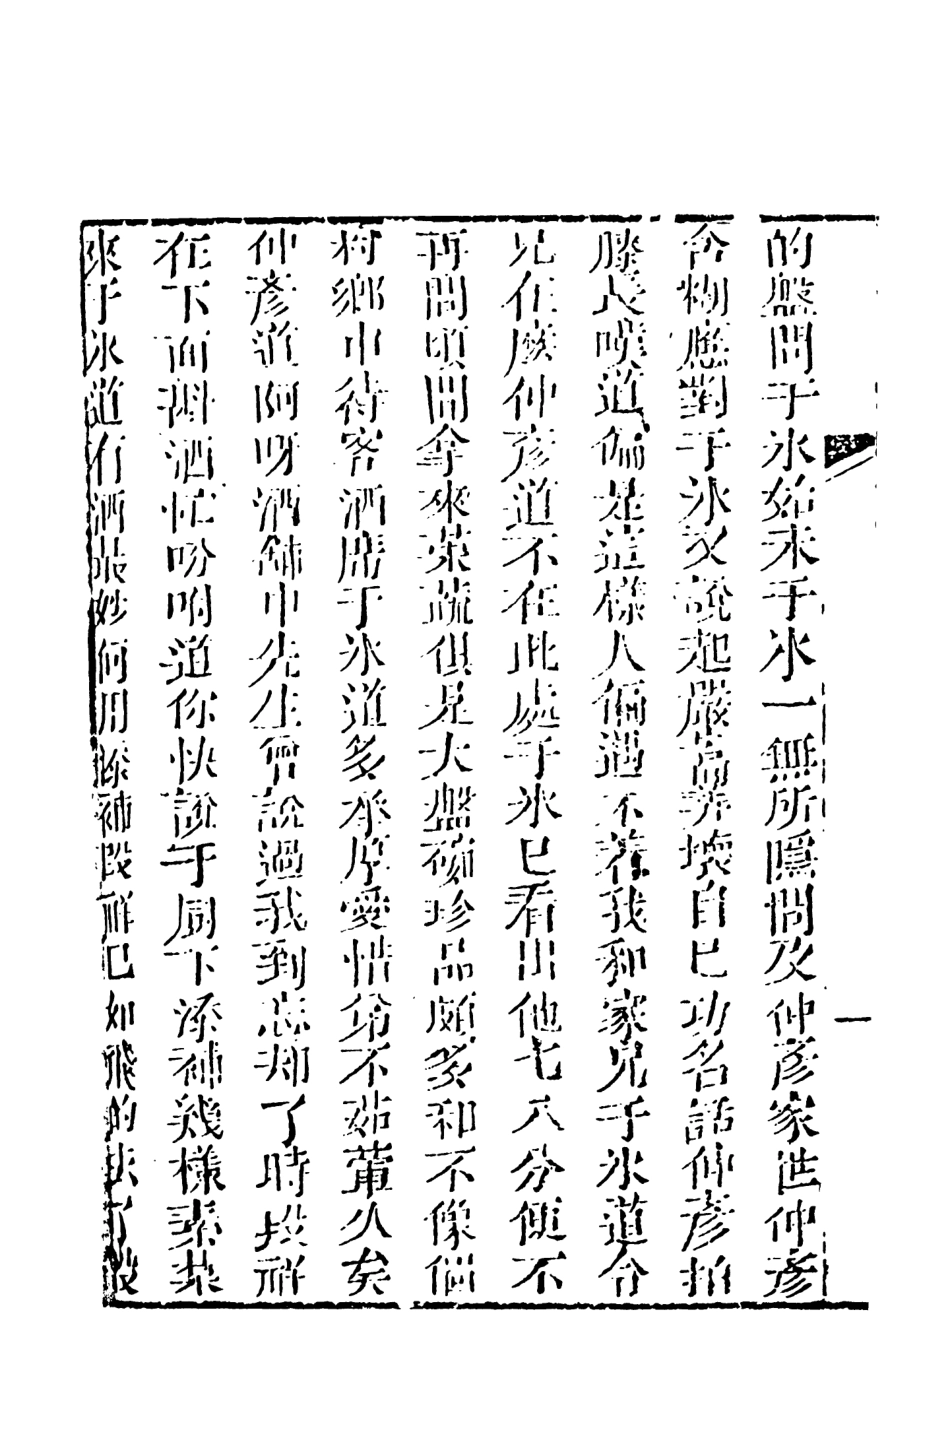 的盤問于氷始末于氷一無所隱問及仲彥家世仲彥
含糊應對于氷又說起嚴嵩弄壞自已功名話仲彥拍
膝長嘆道偏是這樣人偏遇不著我和家兄于氷道令
兄在麽仲彥道不在此處于氷已看出他七八分便不
再問頃間拿來菜蔬俱是大盤碗珍品頗多和不像個
村鄉中待客酒席于氷道多承厚愛惜弟不茹葷久矣
仲彥道阿呀酒舖中先生曾說過我到忘却了時段祥
在下面斟酒忙吩咐道你快說于厨下添補幾樣素菜
來于氷道有酒最妙何用添補段祥已如飛的去了般